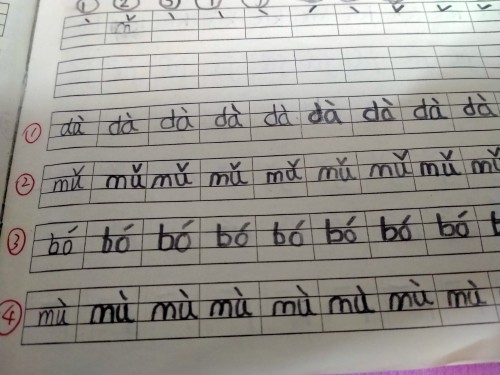 ① dà dà dà dà dà dà dà dà dà
② mǔ mǔ mǔ mǔ mǔ mǔ mǔ mǔ mǔ
③ bó bó bó bó bó bó bó bó
④ mù mù mù mù mù mù mù mù